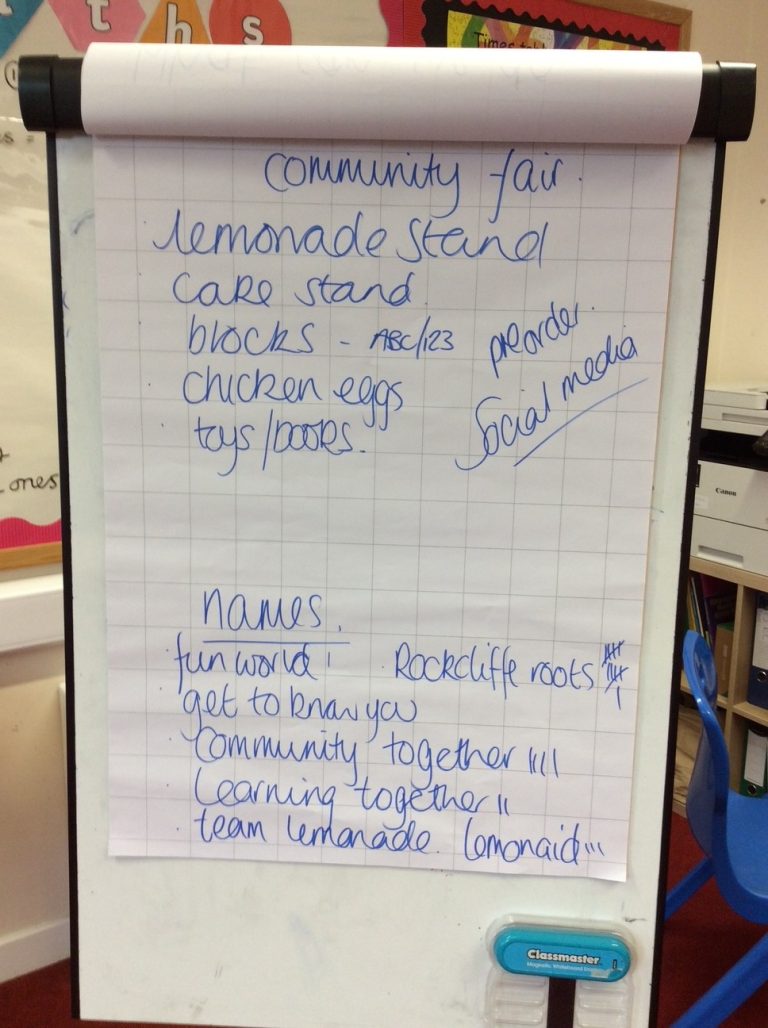 ths
Times
community fair.
lemonade stand
cake stand
blocks - ABC/123
preorder.
chicken eggs
social media
toys/books.
ones
Canon
names.
fun world I
Rockcliffe roots
get to know you
community together IIII
Learning together II
team lemonade. lemonaid III
Classmaster